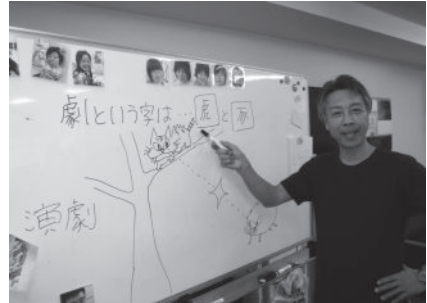 劇という字は…虎と豚
演劇